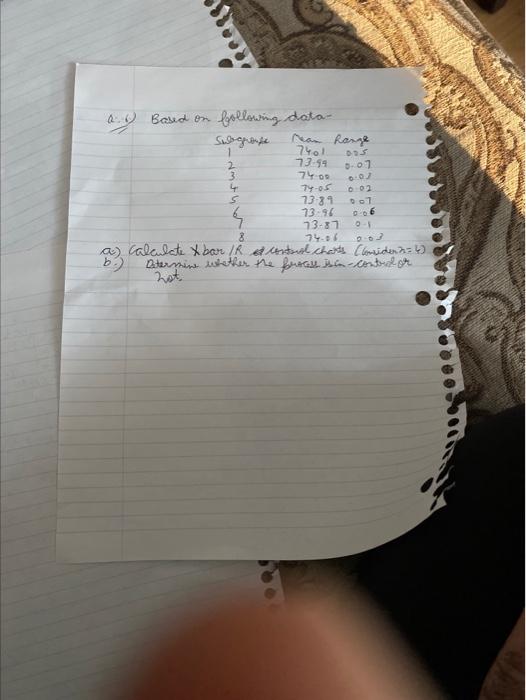 Q.6) Based on following data-
Subgroups Mean Range
1 7401 005
2 73.99 0.07
3 74.00 0.03
4 74.05 0.02
5 73.89 007
6 73.96 0.06
7 73.87 0.1
8 74.06 0.03
a.) Calculate X bar /R control charts (Consider n=4)
b.) Determine whether the process is in-control or
not.